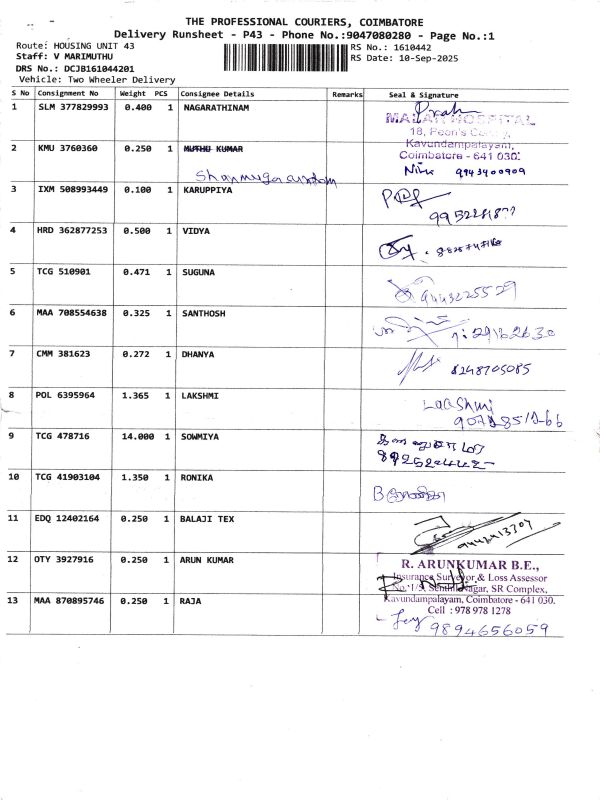 THE PROFESSIONAL COURIERS, COIMBATORE
Delivery Runsheet - P43 - Phone No.:9047080280 - Page No.:1
Route: HOUSING UNIT 43
Staff: V MARIMUTHU
DRS No.: DCJB161044201
Vehicle: Two Wheeler Delivery
RS No.: 1610442
RS Date: 10-Sep-2025
S No Consignment No Weight PCS Consignee Details Remarks Seal & Signature
1 SLM 377829993 0.400 1 NAGARATHINAM
MALAR HOSPITAL
18, Peon's Colony,
Kavundampalayam,
Coimbatore - 641 030.
2 KMU 3760360 0.250 1 MUTHU KUMAR
9943400909
3 IXM 508993449 0.100 1 KARUPPIYA
4 HRD 362877253 0.500 1 VIDYA
5 TCG 510901 0.471 1 SUGUNA
9443225529
6 MAA 708554638 0.325 1 SANTHOSH
7 CMM 381623 0.272 1 DHANYA
8248705085
8 POL 6395964 1.365 1 LAKSHMI
9 TCG 478716 14.000 1 SOWMIYA
10 TCG 41903104 1.350 1 RONIKA
11 EDQ 12402164 0.250 1 BALAJI TEX
12 OTY 3927916 0.250 1 ARUN KUMAR
R. ARUNKUMAR B.E.,
Insurance Surveyor & Loss Assessor
Nagar, SR Complex,
Kavundampalayam, Coimbatore - 641 030.
Cell : 978 978 1278
13 MAA 870895746 0.250 1 RAJA
9894656059